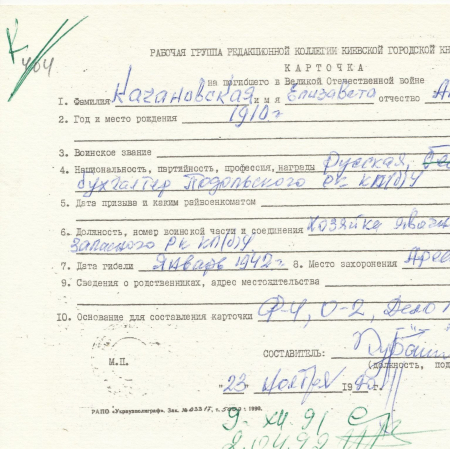 К 404
РАБОЧАЯ ГРУППА РЕДАКЦИОННОЙ КОЛЛЕГИИ КИЕВСКОЙ ГОРОДСКОЙ КН
КАРТОЧКА
на погибшего в Великой Отечественной войне
1. Фамилия Качановская имя Елизавета отчество
2. Год и место рождения 1910 г
3. Воинское звание
4. Национальность, партийность, профессия, награды Русская,
бухгалтер Подольского РК КП/б/У
5. Дата призыва и каким райвоенкоматом
6. Должность, номер воинской части и соединения Хозяйка
Запасного РК КП/б/У
7. Дата гибели Январь 1942 г 8. Место захоронения
9. Сведения о родственниках, адрес местожительства
10. Основание для составления карточки Ф-4, О-2, Дело
СОСТАВИТЕЛЬ:
М.П. (должность, под
"23" ноября 19 г.
РАПО «Укрвузполиграф».
9. XII. 91